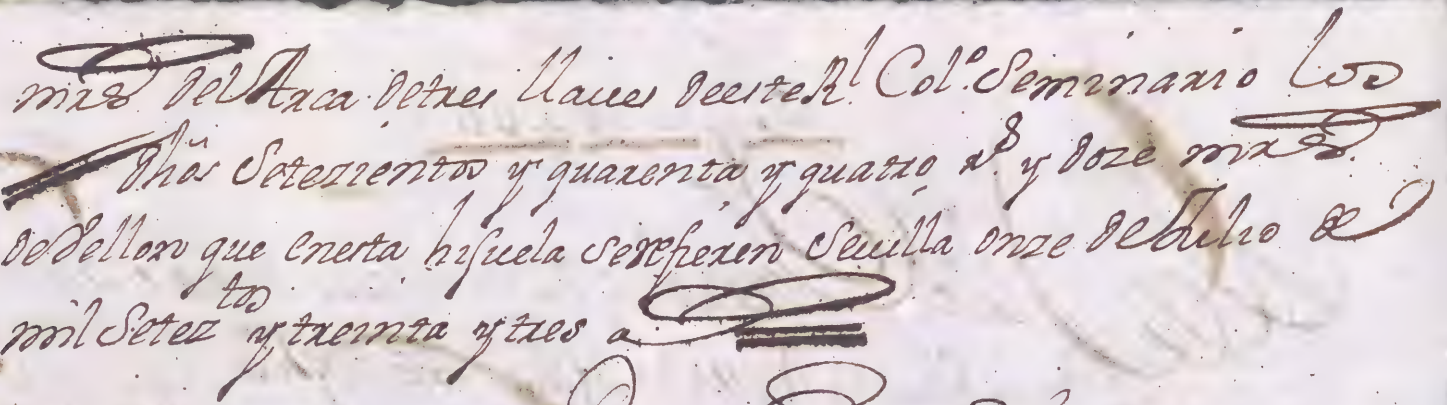 mrs del Arca de tres llaues de este Rl. Colo. Seminario los
dhõs Setezientos y quarenta y quatro Rs. y doze mrs
de Vellon que en esta hijuela se refieren Seuilla onze de Julio de
mil Seteztos y treinta y tres a